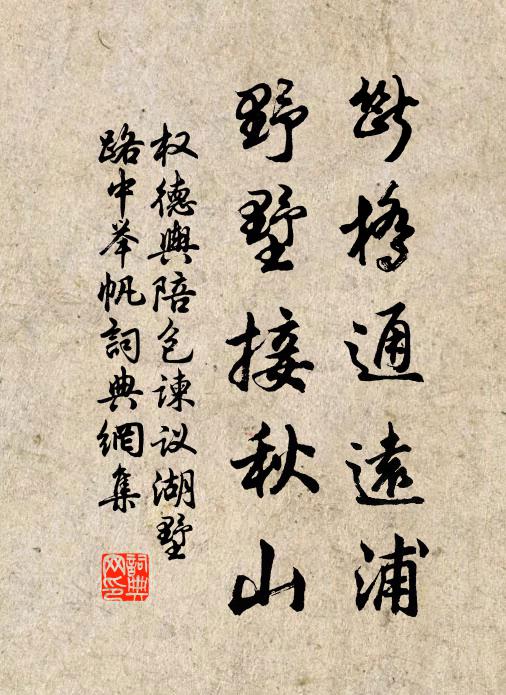 斷橋通遠浦
野墅接秋山
权德輿陪包谏议湖墅
路中举帆詞典網集
詞典網印